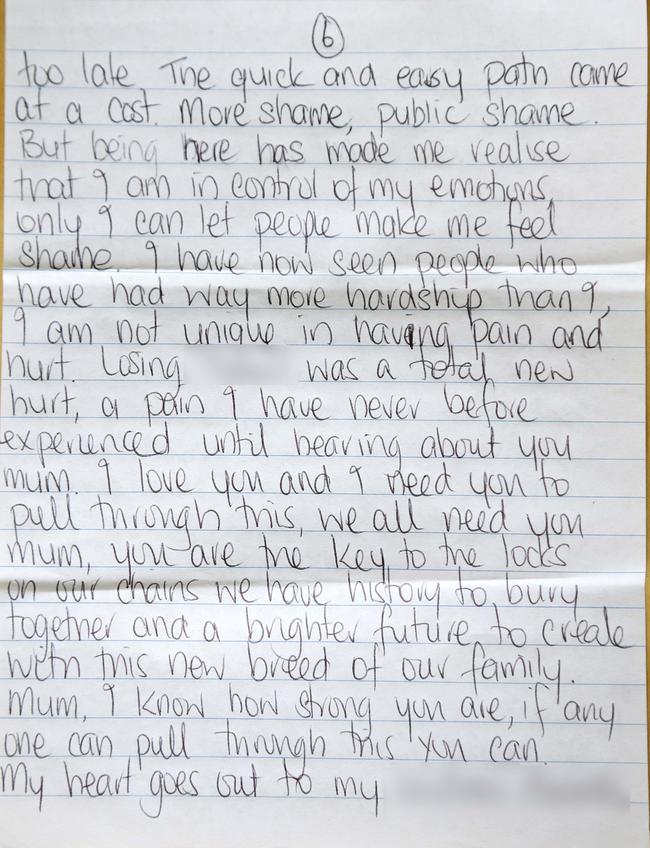 6
too late. The quick and easy path came
at a cost. More shame, public shame.
But being here has made me realise
that I am in control of my emotions,
only I can let people make me feel
shame. I have now seen people who
have had way more hardship than I,
I am not unique in having pain and
hurt. Losing was a total new
hurt, a pain I have never before
experienced until hearing about you
mum. I love you and I need you to
pull through this, we all need you
mum, you are the key to the locks
on our chains we have history to bury
together and a brighter future to create
with this new breed of our family.
Mum, I know how strong you are, if any
one can pull through this you can.
My heart goes out to my